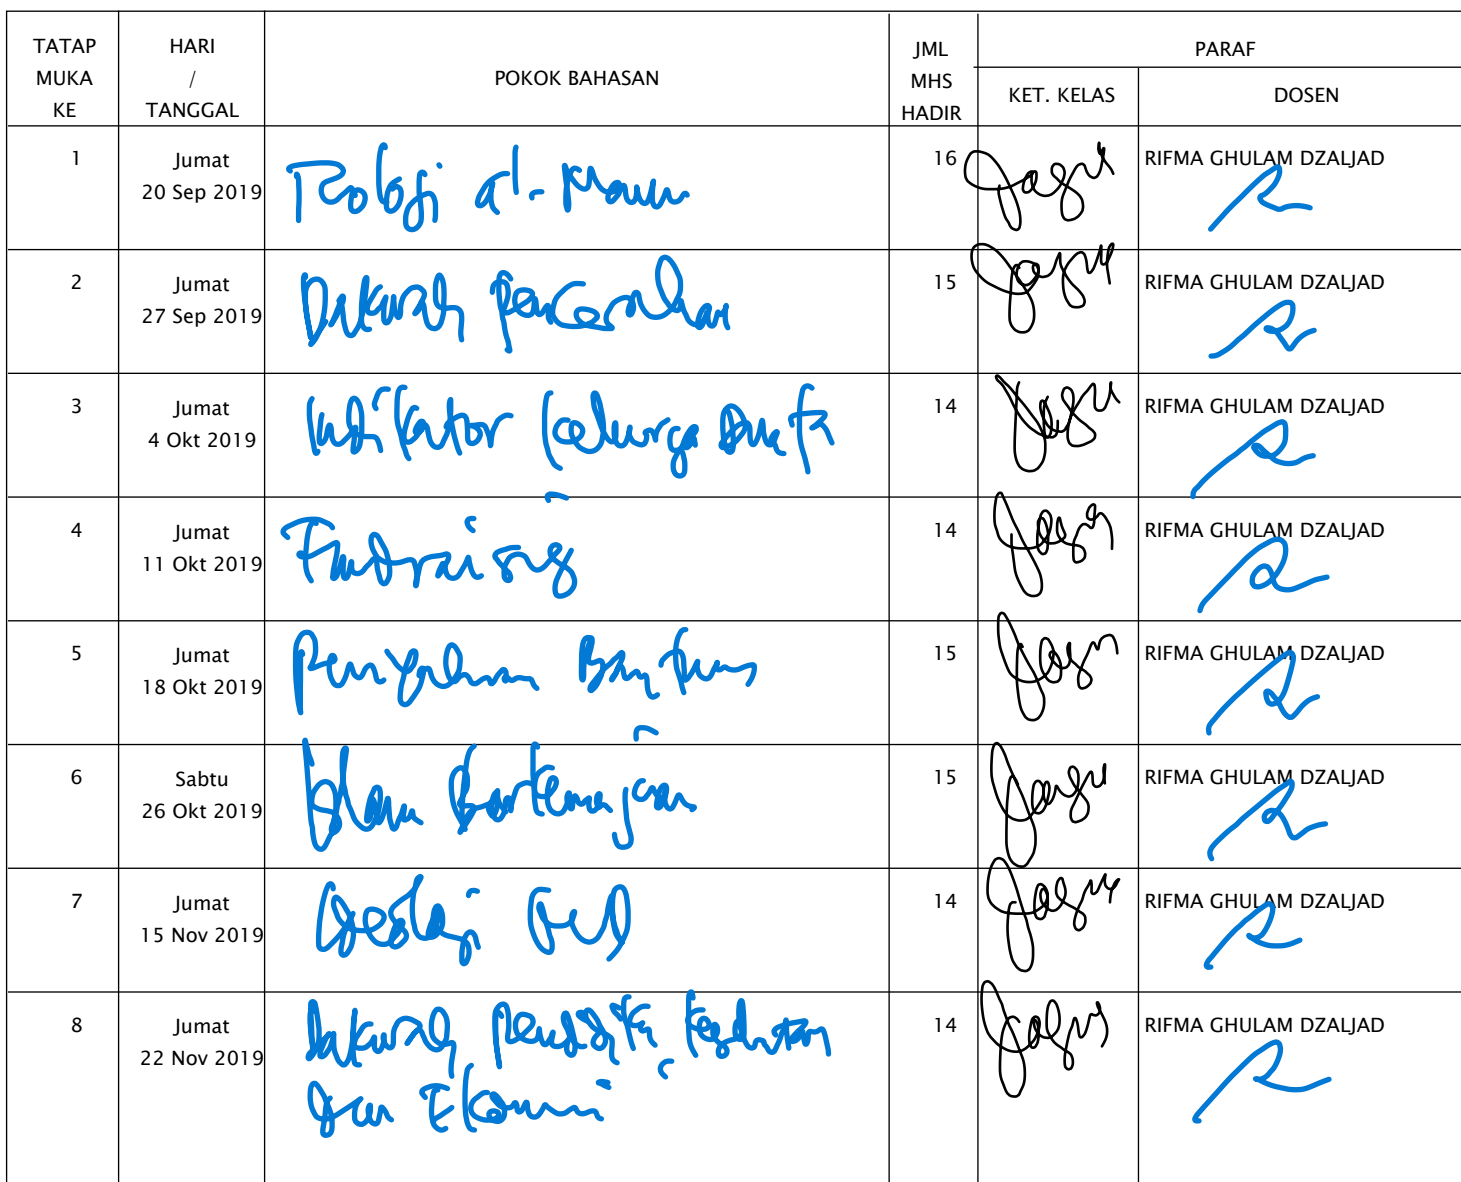 TATAP MUKA KE HARI / TANGGAL POKOK BAHASAN JML MHS HADIR PARAF
KET. KELAS DOSEN
1 Jumat 20 Sep 2019 Teologi al-Maun 16 RIFMA GHULAM DZALJAD
2 Jumat 27 Sep 2019 Dakwah pencerahan 15 RIFMA GHULAM DZALJAD
3 Jumat 4 Okt 2019 Indikator keluarga Duafa 14 RIFMA GHULAM DZALJAD
4 Jumat 11 Okt 2019 Fundraising 14 RIFMA GHULAM DZALJAD
5 Jumat 18 Okt 2019 15 RIFMA GHULAM DZALJAD
6 Sabtu 26 Okt 2019 Islam Berkemajuan 15 RIFMA GHULAM DZALJAD
7 Jumat 15 Nov 2019 14 RIFMA GHULAM DZALJAD
8 Jumat 22 Nov 2019 Dakwah 14 RIFMA GHULAM DZALJAD
dan Ekonomi